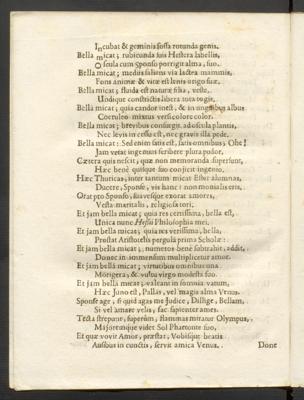 Incubat & geminis fossa rotunda genis.
Bella micat; rubicunda suis Hestera labellis,
Oscula cum Sponso porrigit alma, suo.
Bella micat; medus saliens via lactea mammis,
Fons animæ & vitæ est lenis origo suæ.
Bella micat; fluida est naturæ filia, veste,
Undique constrictis libera tota togis.
Bella micat; quia candor inest, & in albus
Coeruleo mixtus versicolore color.
Bella micat; brevibus consurgit adoscula plantis,
Nec levis incessu est, nec gravis illa pede.
Bella micat: Sed enim satis est, satis omnibus; Ohe!
Jam vetat ingenuus scribere plura pudor.
Cætera quis nescit, quæ non memoranda supersunt,
Hæc bene quisque suo conjicit ingenio.
Hæc Thuricas, inter tantum micat Ester alumnas,
Ducere, Sponse, vis hanc? non monialis eris.
Orat pro Sponso, sua vesque exorat amores,
Vesta maritalis, religiosa tori.
Et jam bella micat; quia res certissima, bella est,
Unica nunc Hessi Philosophia mei.
Et jam bella micat; quia res verissima, bella,
Prostat Aristotelis pergula prima Scholæ:
Et jam bella micat; numeros bene subtrahit, addit,
Donec in immensum multiplicetur amor.
Et jam bella micat; virtutibus omnibus una
Morigera, & vultu virgo modesta suo.
Et jam bella micat; valeant in somnia vatum,
Hæc Juno est, Pallas, vel magis alma Venus.
Sponse age, si quid agas me Judice, Dillige, Bellam,
Si vel amare velis, fac sapienter ames.
Tecta strepunt, superûm, flammas miratur Olympus,
Majoremque videt Sol Phaetonte suo,
Et quæ vovit Amor, præstat, Vobisque beatis
Ausibus in cunctis, servit amica Venus.
Donc